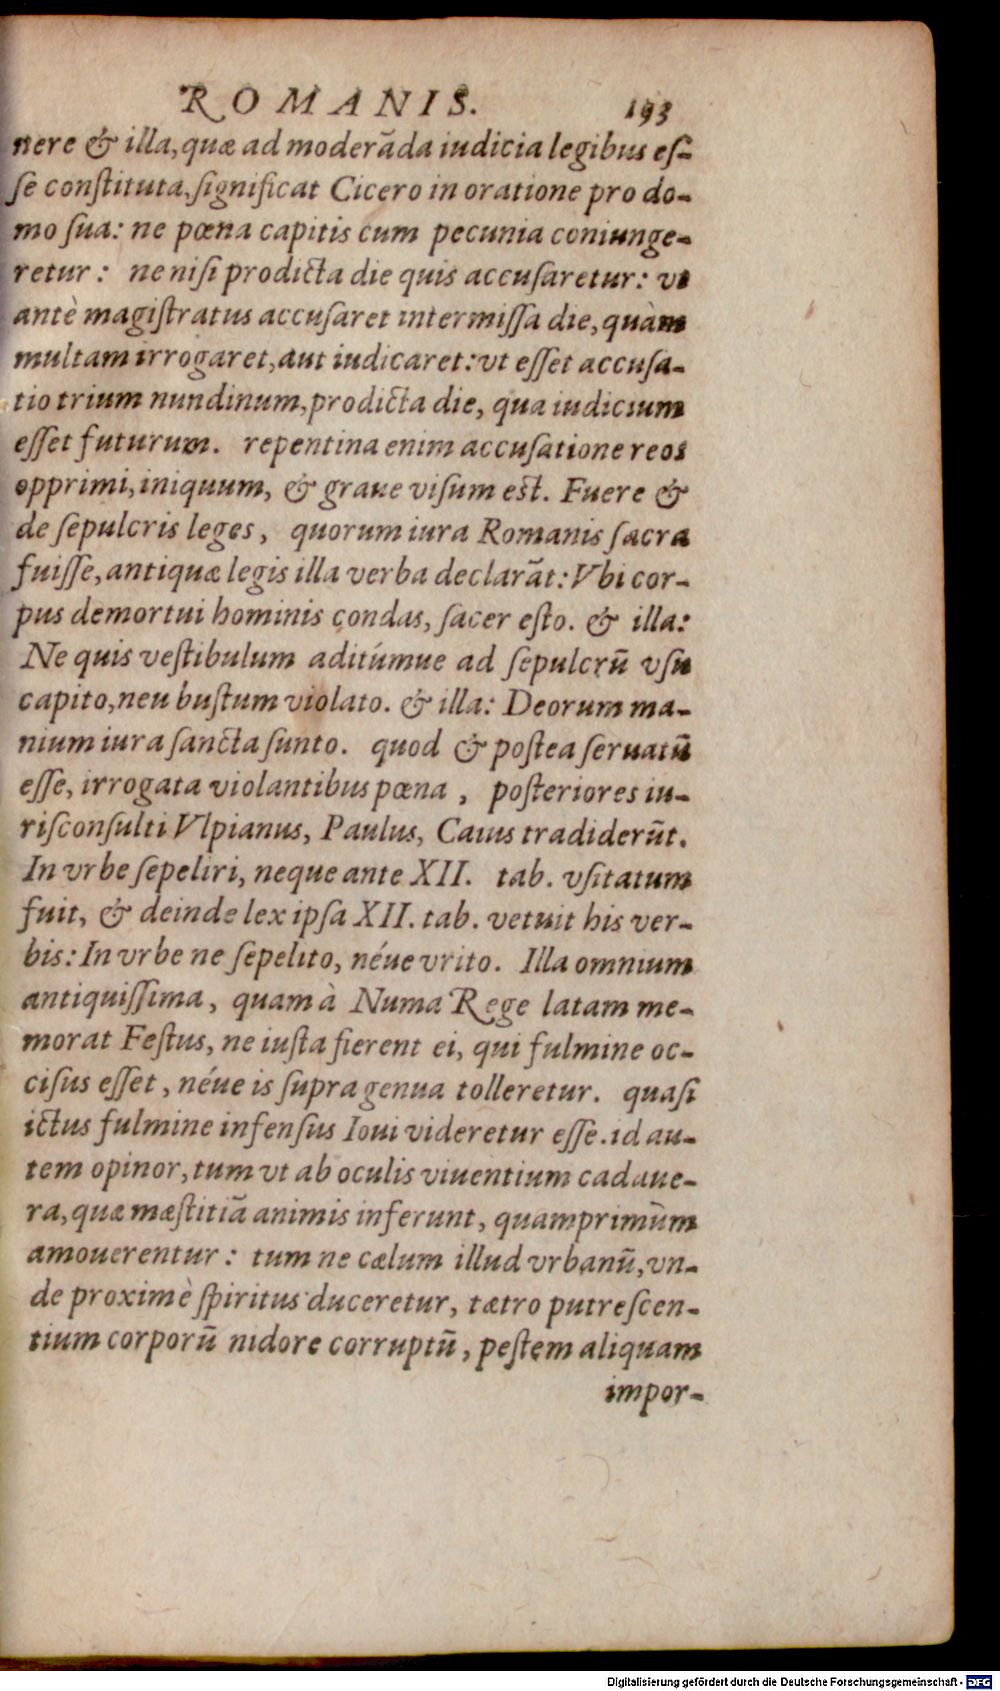 ROMANIS. 193
nere & illa, quæ ad moderãda iudicia legibus eſ-
ſe conſtituta, ſignificat Cicero in oratione pro do-
mo ſua: ne pœna capitis cum pecunia coniunge-
retur: ne niſi prodicta die quis accuſaretur: vt
antè magiſtratus accuſaret intermiſſa die, quàm
multam irrogaret, aut iudicaret: vt eſſet accuſa-
tio trium nundinum, prodicta die, qua iudicium
eſſet futurum. repentina enim accuſatione reos
opprimi, iniquum, & graue viſum eſt. Fuere &
de ſepulcris leges, quorum iura Romanis ſacra
fuiſſe, antiquæ legis illa verba declarãt: Vbi cor-
pus demortui hominis condas, ſacer eſto. & illa:
Ne quis veſtibulum aditúmue ad ſepulcrũ vſu
capito, neu buſtum violato. & illa: Deorum ma-
nium iura ſancta ſunto. quod & poſtea ſeruatũ
eſſe, irrogata violantibus pœna, poſteriores iu-
riſconſulti Vlpianus, Paulus, Caius tradiderũt.
In vrbe ſepeliri, neque ante XII. tab. vſitatum
fuit, & deinde lex ipſa XII. tab. vetuit his ver-
bis: In vrbe ne ſepelito, néue vrito. Illa omnium
antiquiſſima, quam à Numa Rege latam me-
morat Feſtus, ne iuſta fierent ei, qui fulmine oc-
ciſus eſſet, néue is ſupra genua tolleretur. quaſi
ictus fulmine infenſus Ioui videretur eſſe. id au-
tem opinor, tum vt ab oculis viuentium cadaue-
ra, quæ mæſtitiã animis inferunt, quamprimùm
amouerentur: tum ne cælum illud vrbanũ, vn-
de proximè ſpiritus duceretur, tætro putreſcen-
tium corporũ nidore corruptũ, peſtem aliquam
impor-
Digitalisierung gefördert durch die Deutsche Forschungsgemeinschaft - DFG